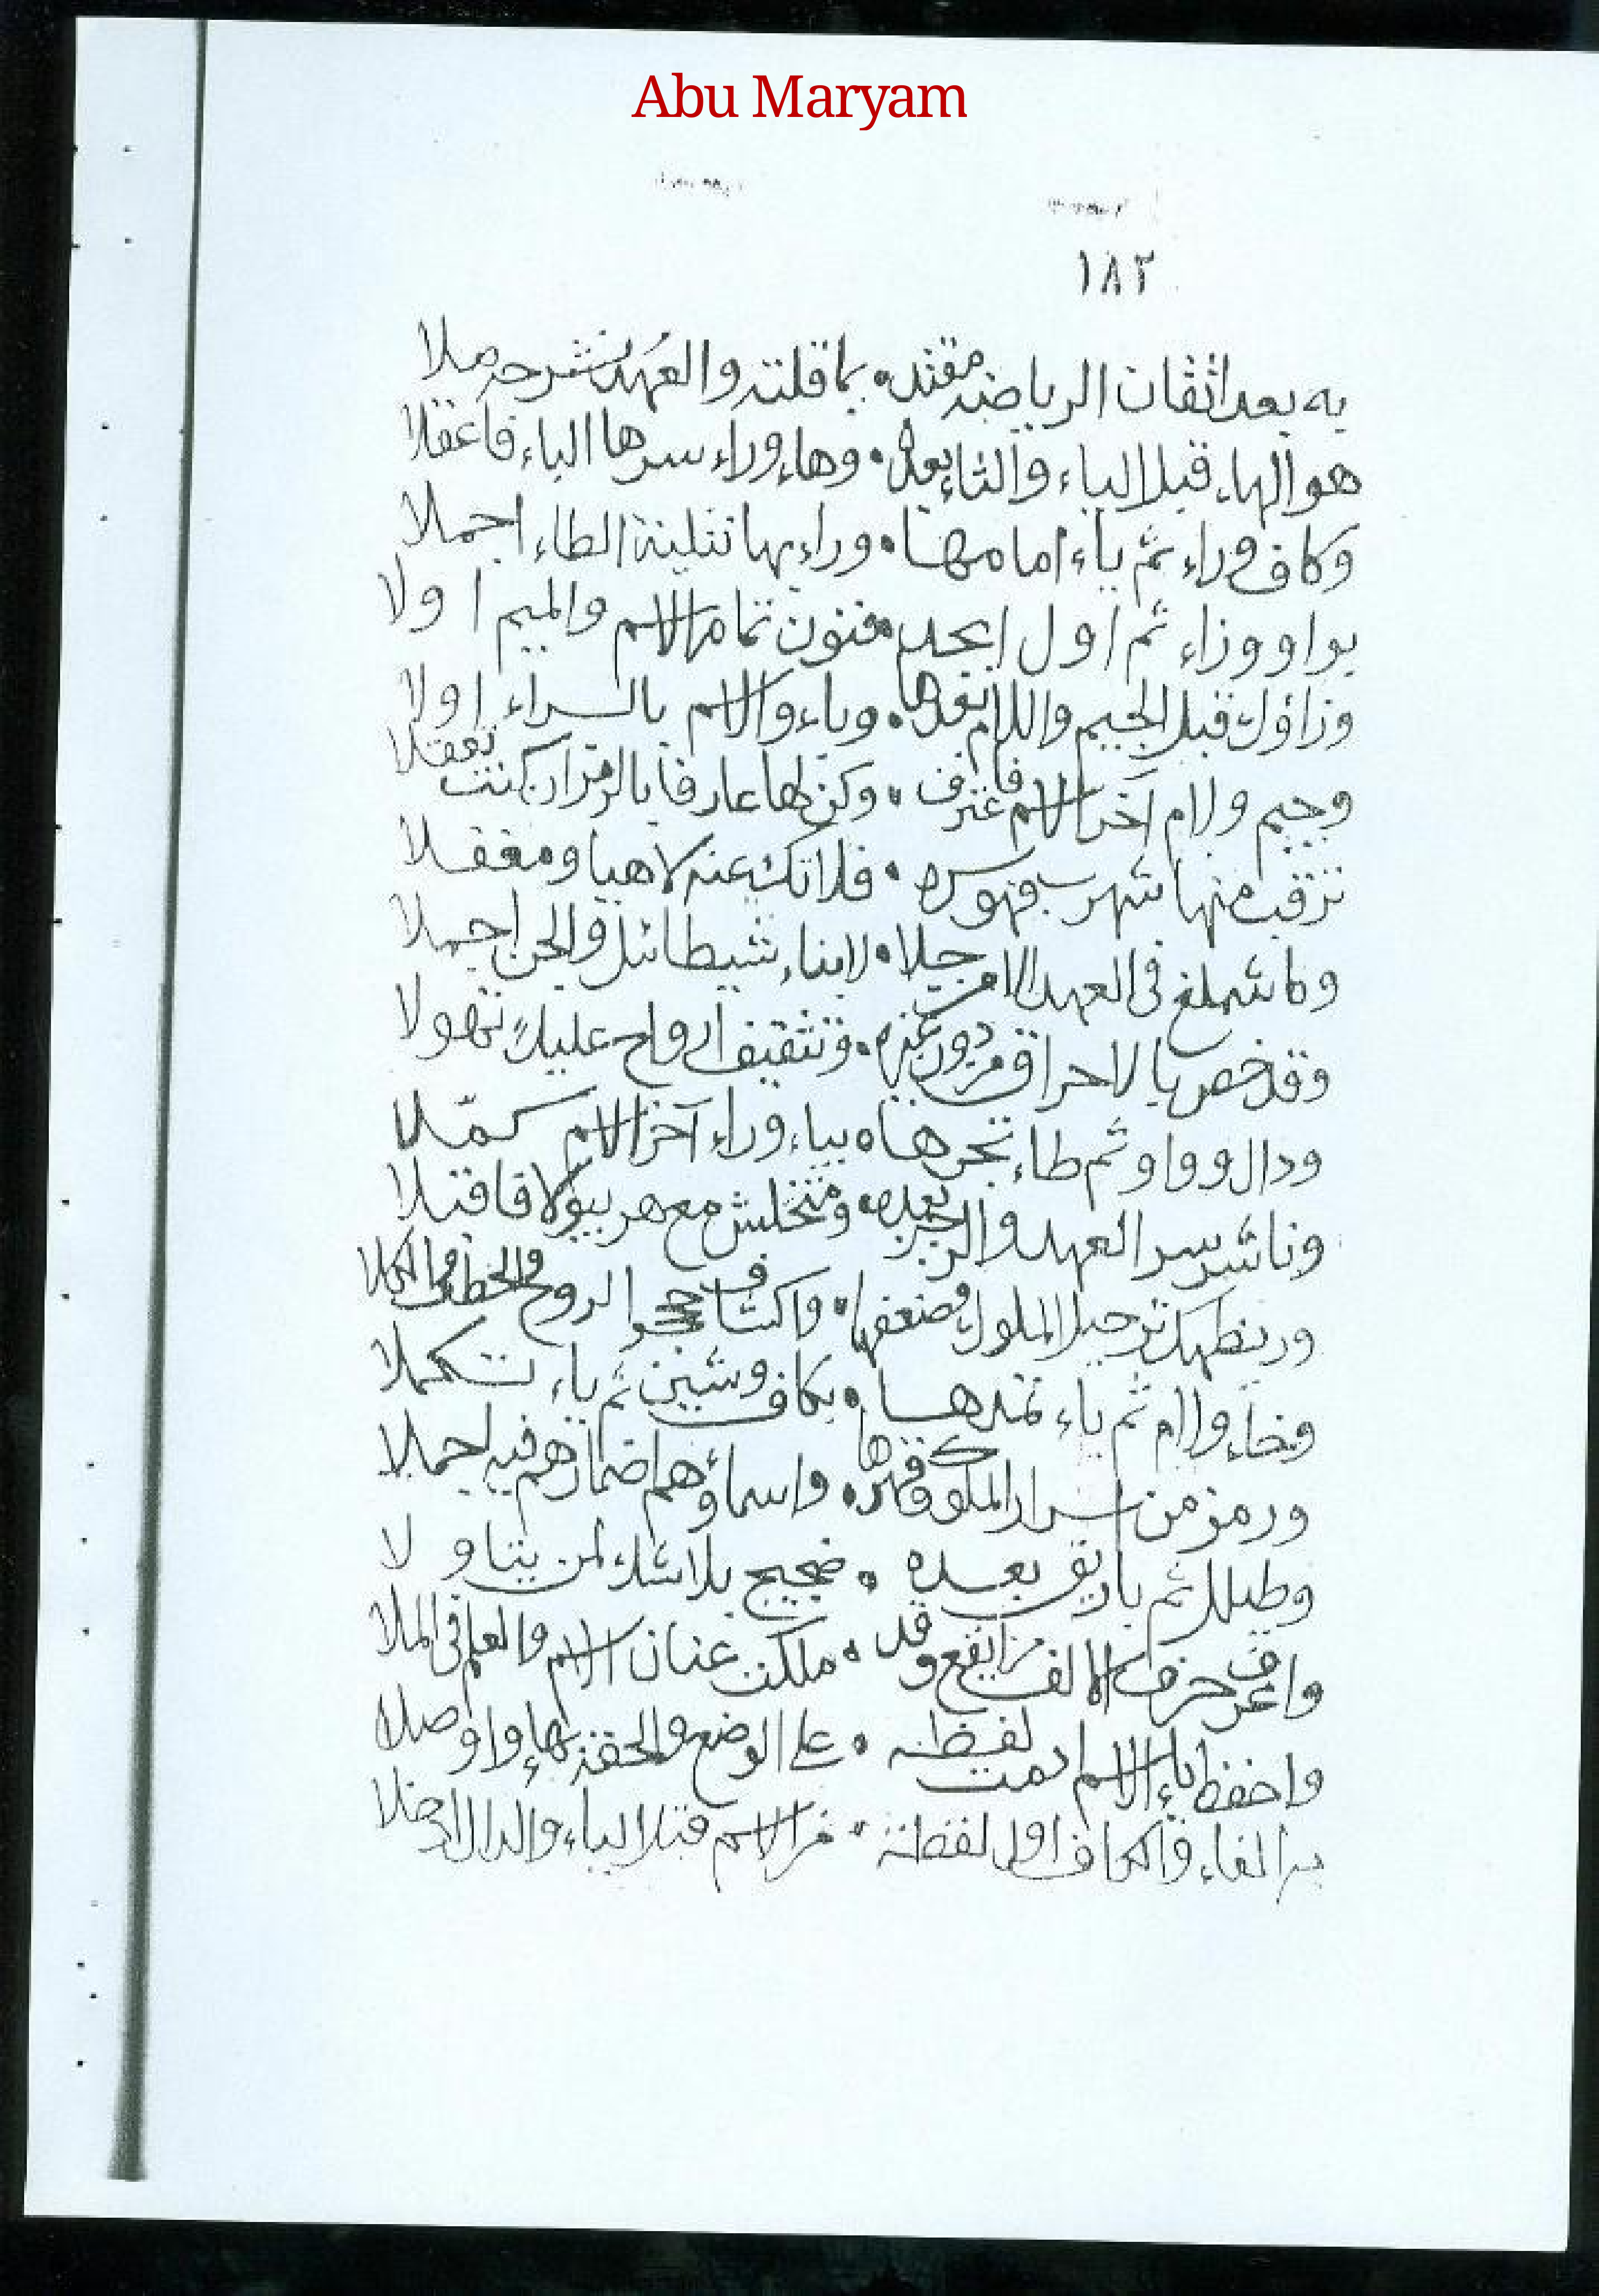 Abu Maryam
١٨٢
به بعد اتقان الرياضة مقتد • بما قلته والعهد شرحه صلا
هو الهاء قبل الباء والتاء بعدها • وهاء وراء سرها الباء فاعقلا
وكاف وراء ثم ياء امامها • وراء بها تثلية الطاء اجملا
بواو وزاء ثم اول ابجد • فنون تمام الاسم والميم اولا
وزاؤك قبل الجيم واللام بعدها • وباء والاسم بالراء اولا
وجيم ولام آخر الاسم فاعترف • وكن لها عارفا بالرمز ان كنت تعقلا
ترقب منها شهرب فهوسره • فلا تك عنه لاهيا ومغفلا
وما شملخ في العهد الا جلا • لابناء شيطائل والجن اجملا
وقد خص بالاحراق من دون غيره • وتثقيف ارواح عليك تهولا
ودال وواو ثم طاء تجرها • بباء وراء آخر الاسم كملا
وناشر سر العهد والزجر بعده • ومتخلش مع هربيو لاقا قتلا
ترحيل الملوك وضعفها • واكتاف الروح والخطاف
وخاء ولام ثم ياء تمدها • بكاف وشين ثم ياء تكملا
ورمز من اسرار الملوك وقهرها • واسماؤهم اضمارهم فيه اجملا
وطيلل ثم باريق بعده • ضجيج بلا شك لمن يتاولا
واعرف حرف الالف وقد • ملكت عنان الاسم والعلم في الملا
واحفظ باء الاسم لفظه • على الوضع والحقه بهاء واوصلا
به الفاء والكاف اول لفظة • من الاسم قبل الباء والدال ادخلا